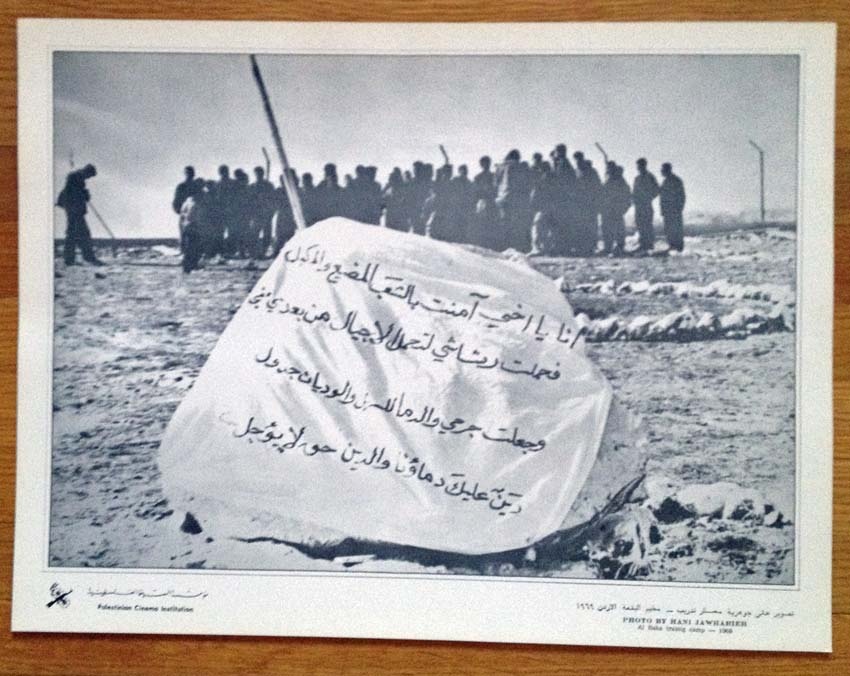 انا يا اخي آمنت بالشعب المضيع والمكبل
فحملت رشاشي لتحمل الاجيال من بعدي
وجعلت جرحي والدما للسهل والوديان جدول
دَينٌ عليكَ دماؤنا والدين حق لا يؤجل
مؤسسة السينما الفلسطينية
Palestinian Cinema Institution
تصوير هاني جوهرية معسكر تدريب ــ مخيم البقعة الاردن ١٩٦٩
PHOTO BY HANI JAWHARIEH
Al Baka traing camp — 1969